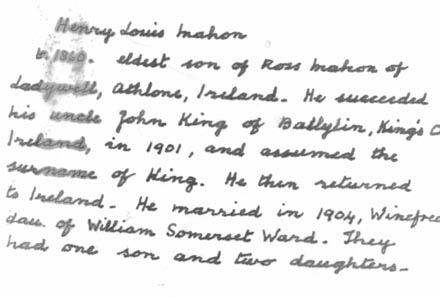 Henry Louis Mahon
b. 1860. eldest son of Ross Mahon of
Ladywell, Athlone, Ireland. He succeeded
his uncle John King of Ballylin, King's C
Ireland, in 1901, and assumed the
surname of King. He then returned
to Ireland. He married in 1904, Winefred
dau. of William Somerset Ward. They
had one son and two daughters.